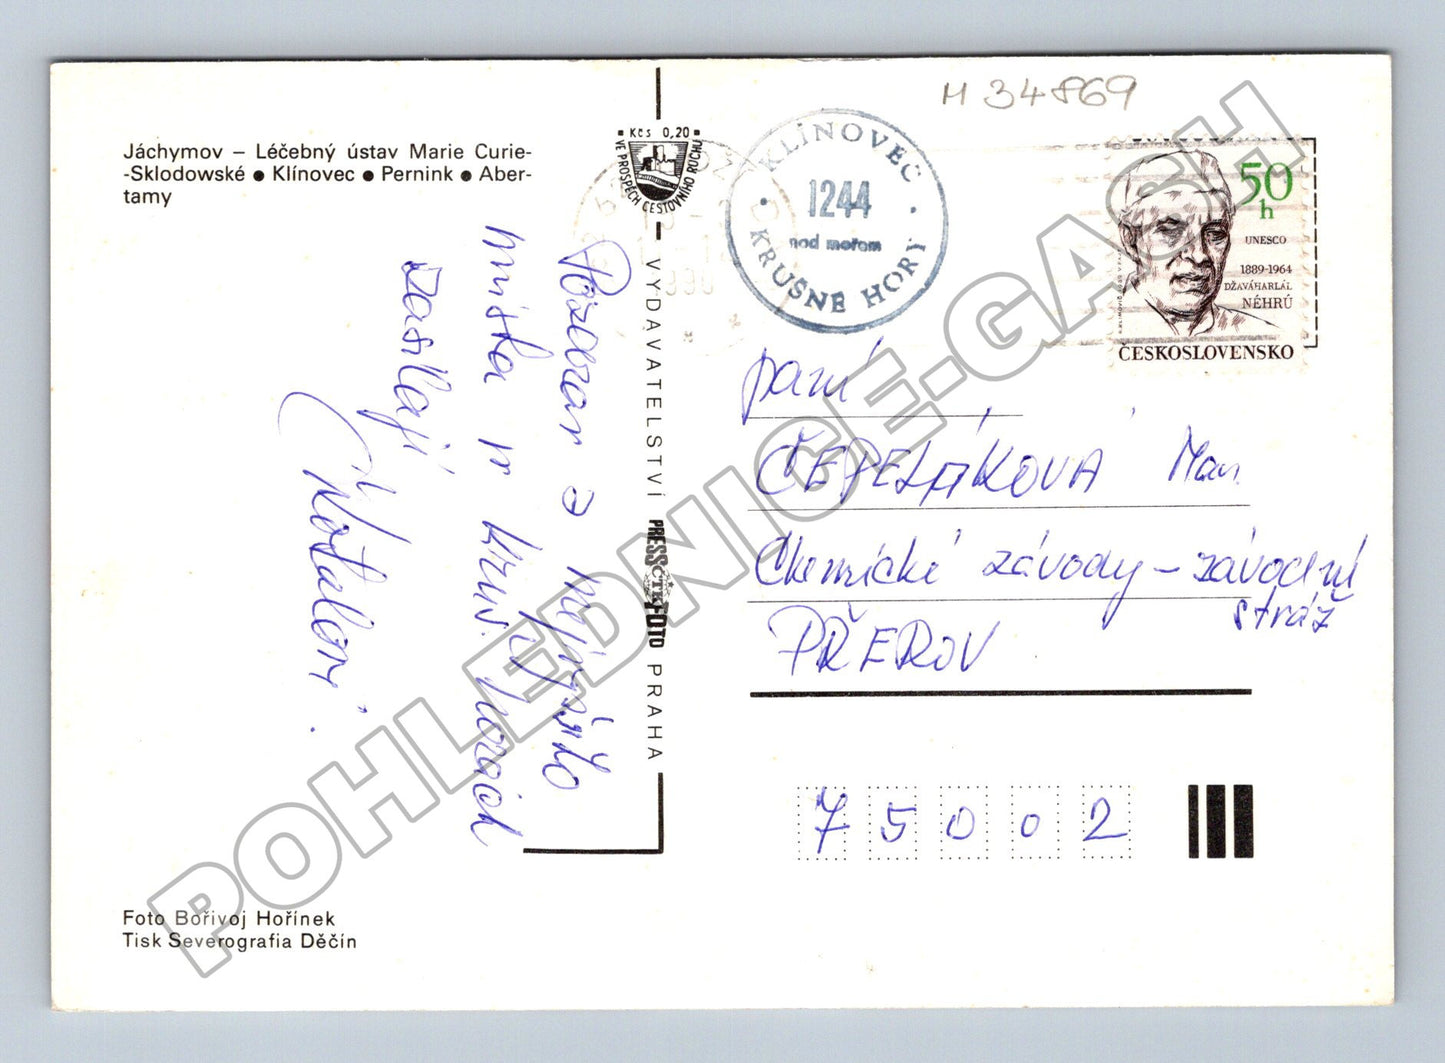 Jáchymov – Léčebný ústav Marie Curie-
-Sklodowské ● Klínovec ● Pernink ● Aber-
tamy
Pozdrav z nejvyššího
místa v Kruš. horách
zasílají
Foto Bořivoj Hořínek
Tisk Severografia Děčín
Kčs 0,20
VE PROSPĚCH CESTOVNÍHO RUCHU
VYDAVATELSTVÍ PRESSFOTO PRAHA
ČTK
M 34869
KLÍNOVEC
1244
nad mořem
KRUŠNÉ HORY
50
h
UNESCO
1889-1964
DŽAVÁHARLÁL
NÉHRÚ
ČESKOSLOVENSKO
paní
ČEPELÁKOVÁ
Chemické závody – závodní
stráž
PŘEROV
75002
POHLEDNICE-GASH